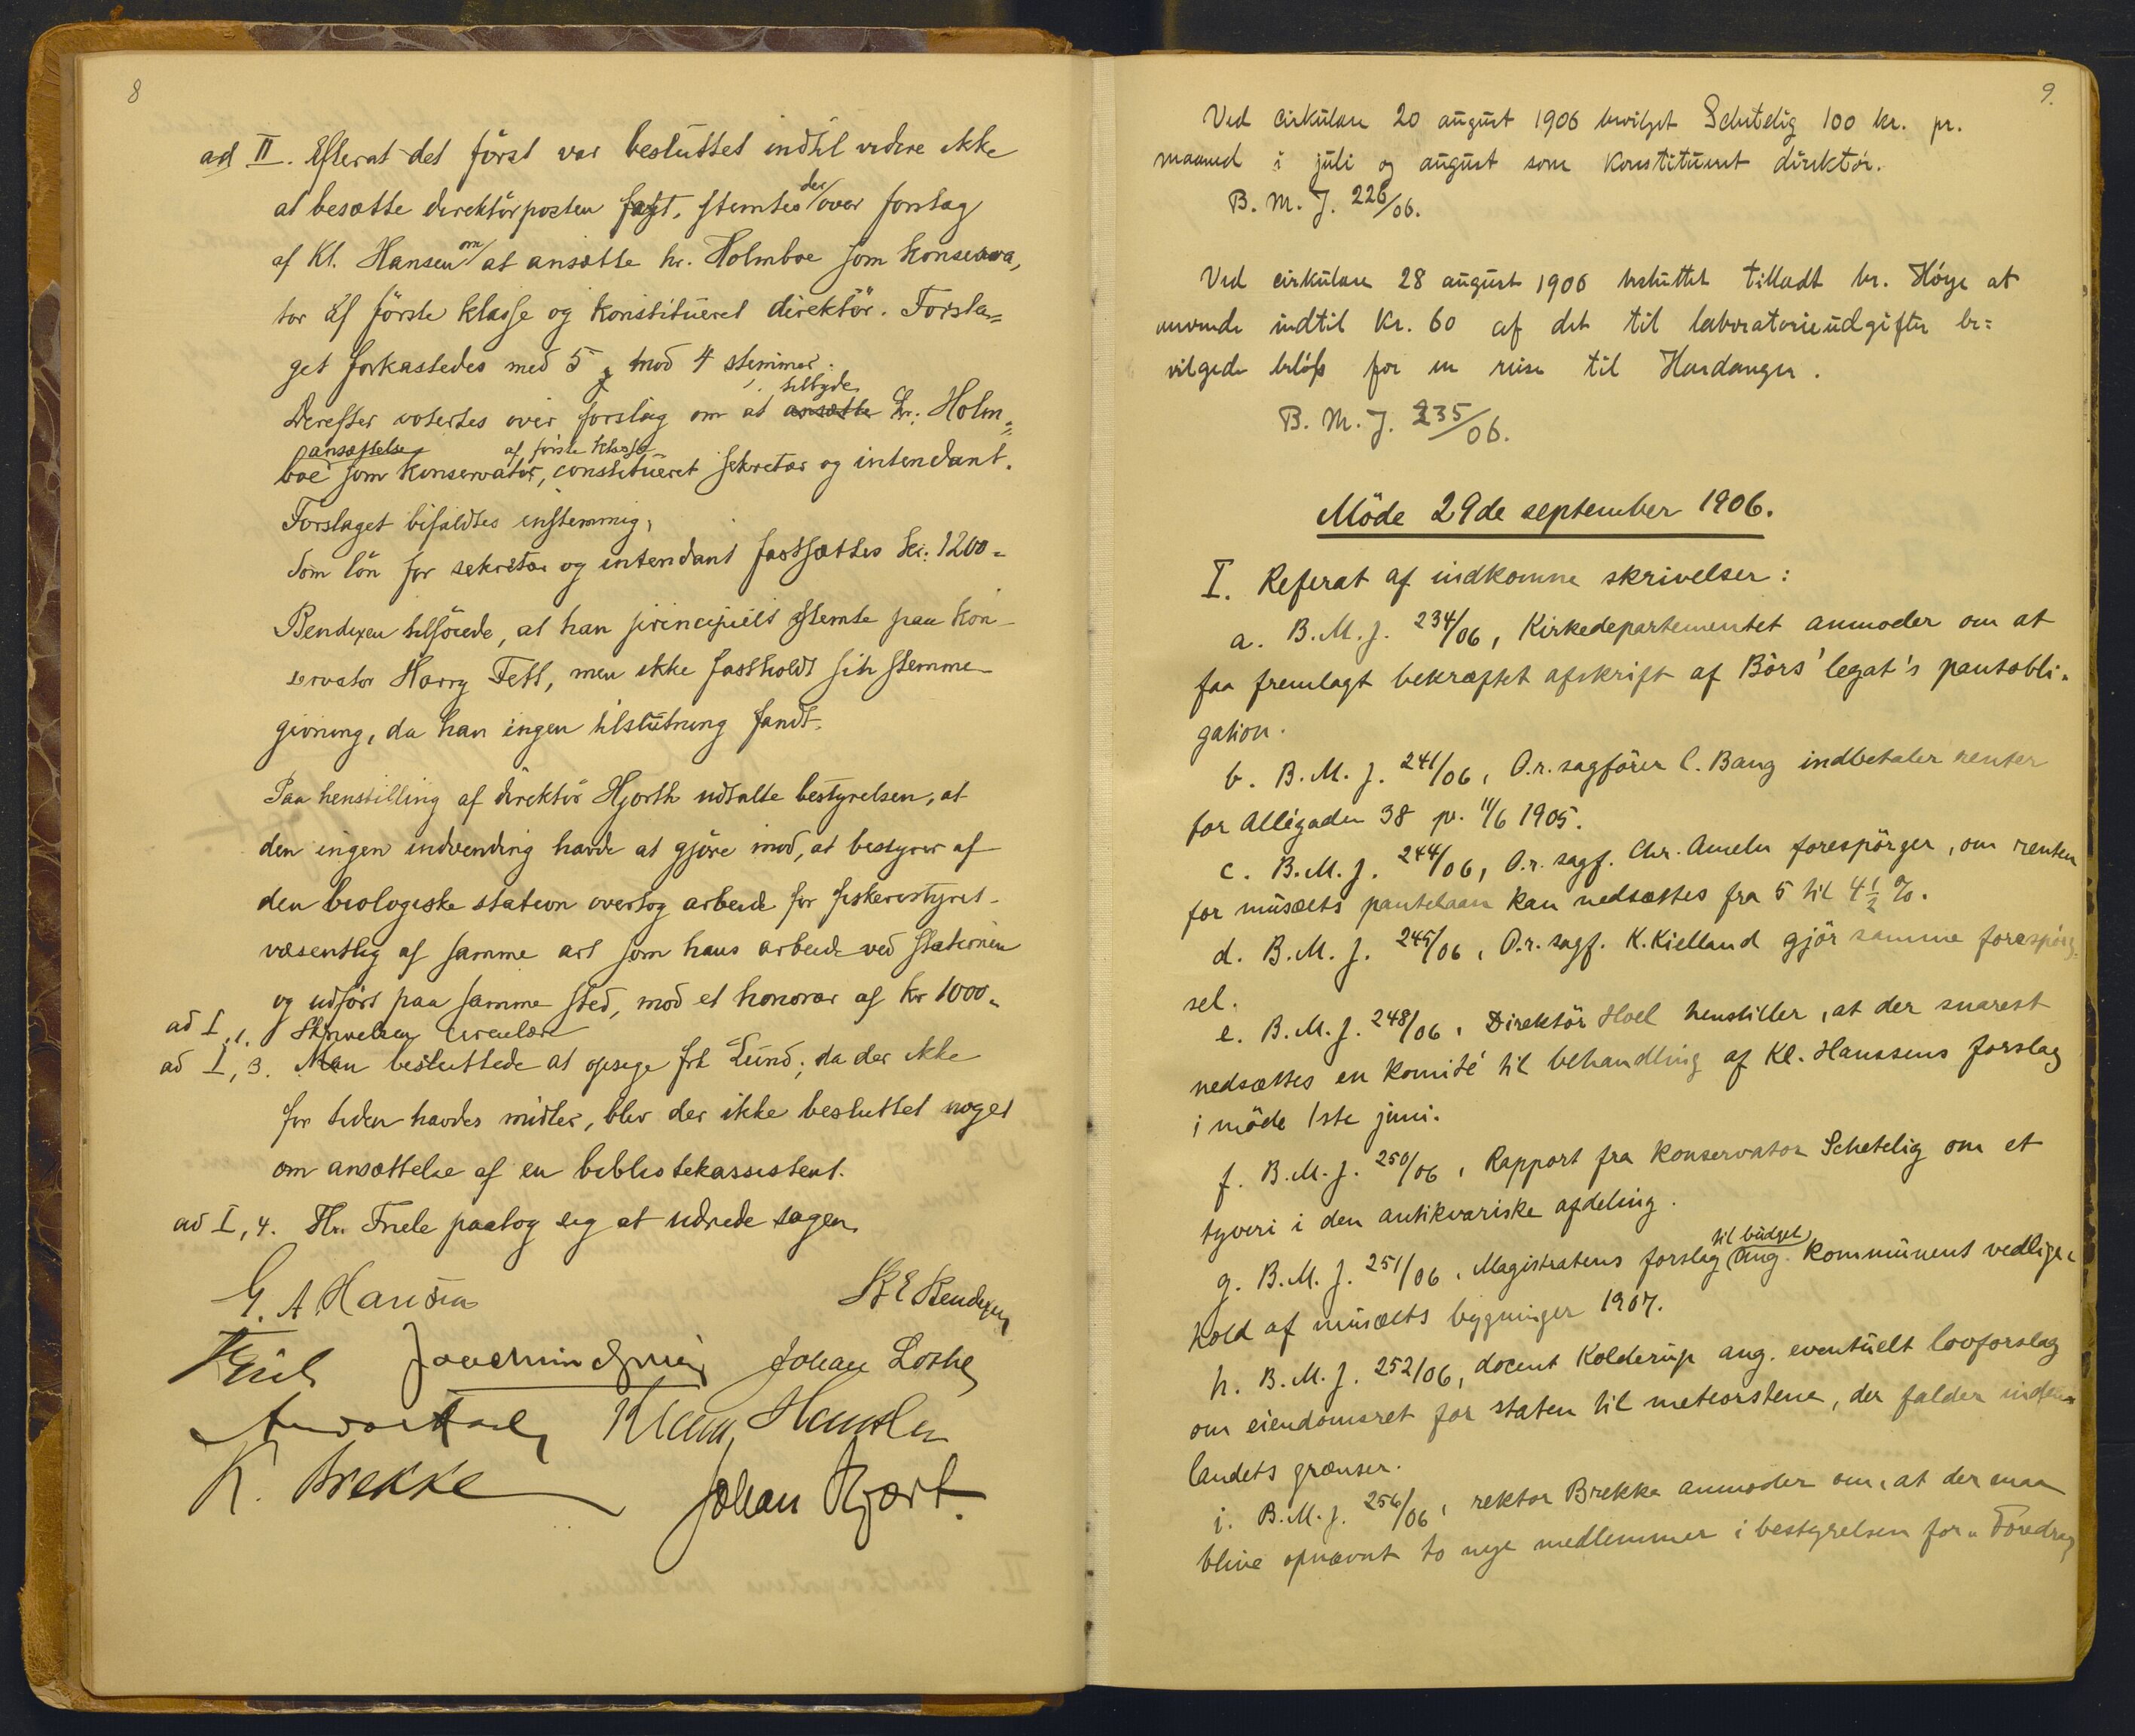 8
ad II. Efterat det först var besluttet indtil videre ikke
at besætte direktörposten fast, stemtes der over forslag
af Kl. Hansen om at ansætte hr. Holmboe som konserva,
tor af förste klasse og konstitueret direktör. Forsla=
get forkastedes med 5 mod 4 stemmer.
Derefter votertes over forslag om at ansætte tilbyde hr. Holm=
boe ansættelse som konservator af förste klasse, constitueret sekretær og intendant.
Forslaget bifaldtes enstemmig,
Som lön for sekretær og intendant fastsættes kr. 1200=
Bendixen tilförede, at han principielt stemte paa kon-
servator Harry Fett, men ikke fastholdt sin stemme-
givning, da han ingen tilslutning fandt.
Paa henstilling af direktör Hjorth udtalte bestyrelsen, at
den ingen indvending havde at gjöre mod, at bestyrer af
den biologiske station overtog arbeide for fiskeristyret-
væsentlig af samme art som hans arbeide ved stationen
og udfört paa samme sted, mod et honorar af kr 1000=
ad I, 1. Skrivelsen Circulære
ad I, 3. Man besluttede at opsige frk Lund; da der ikke
for tiden havdes midler, blev der ikke besluttet noget
om ansættelse af en bibliotekassistent.
ad I, 4. Hr. Friele paatog sig at udrede sagen
G. A. Hansen
B E Bendixen
Friele Joachim Grieg Johan Lothe
Klaus Hanssen
K. Brekke
Johan Hjort.
9.
Ved cirkulære 20 august 1906 bevilget Schetelig 100 kr. pr.
maaned i juli og august som konstitueret direktör.
B. M. J. 226/06.
Ved cirkulære 28 august 1906 besluttet tilladt hr. Höye at
anvende indtil Kr. 60 af det til laboratorieudgifter be=
vilgede belöb for en reise til Hardanger.
B. M. J. 235/06.
Möde 29de september 1906.
I. Referat af indkomne skrivelser:
a. B. M. J. 234/06, Kirkedepartementet anmoder om at
faa fremlagt bekræftet afskrift af Börs' legat's pantobli=
gation.
b. B. M. J. 241/06, O.r. sagförer C. Bang indbetaler renter
for Allégaden 38 pr. 11/6 1905.
c. B. M. J. 244/06, O.r. sagf. Chr. Ameln forespörger, om renten
for musæets pantelaan kan nedsættes fra 5 til 4 1/2 %.
d. B. M. J. 245/06, O.r. sagf. K. Kielland gjör samme forespörg=
sel.
e. B. M. J. 248/06, Direktör Hoel henstiller, at der snarest
nedsættes en komité til behandling af Kl. Hanssens forslag
i möde 1ste juni.
f. B. M. J. 250/06, Rapport fra konservator Schetelig om et
tyveri i den antikvariske afdeling.
g. B. M. J. 251/06, Magistratens forslag til budget ang. kommunens vedlige=
hold af musæets bygninger 1907.
h. B. M. J. 252/06, docent Kolderup ang. eventuelt lovforslag
om eiendomsret for staten til meteorstene, der falder inden
landets grænser.
i. B. M. J. 256/06, rektor Brekke anmoder om, at der maa
blive opnævnt to nye medlemmer i bestyrelsen for „Foredrag